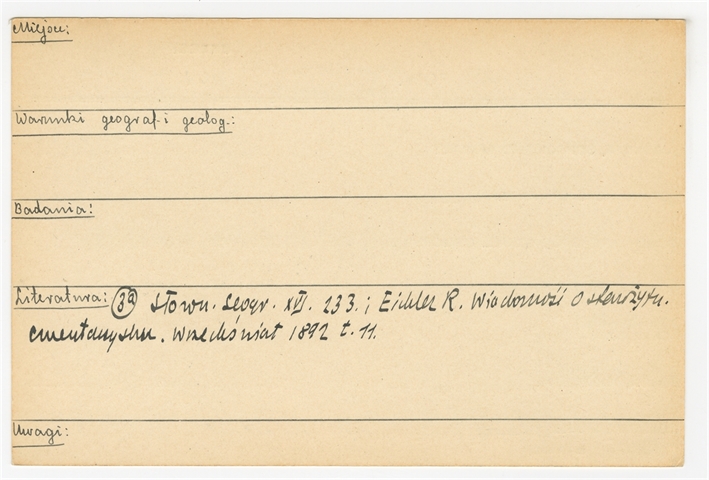 Miejsce:
Warunki geograf. i geolog.:
Badania:
Literatura: 3a Słown. Geogr. XVI. 233.; Eichler R. Wiadomość o starożytn.
cmentarzysku. Wszechświat 1892 t. 11.
Uwagi: